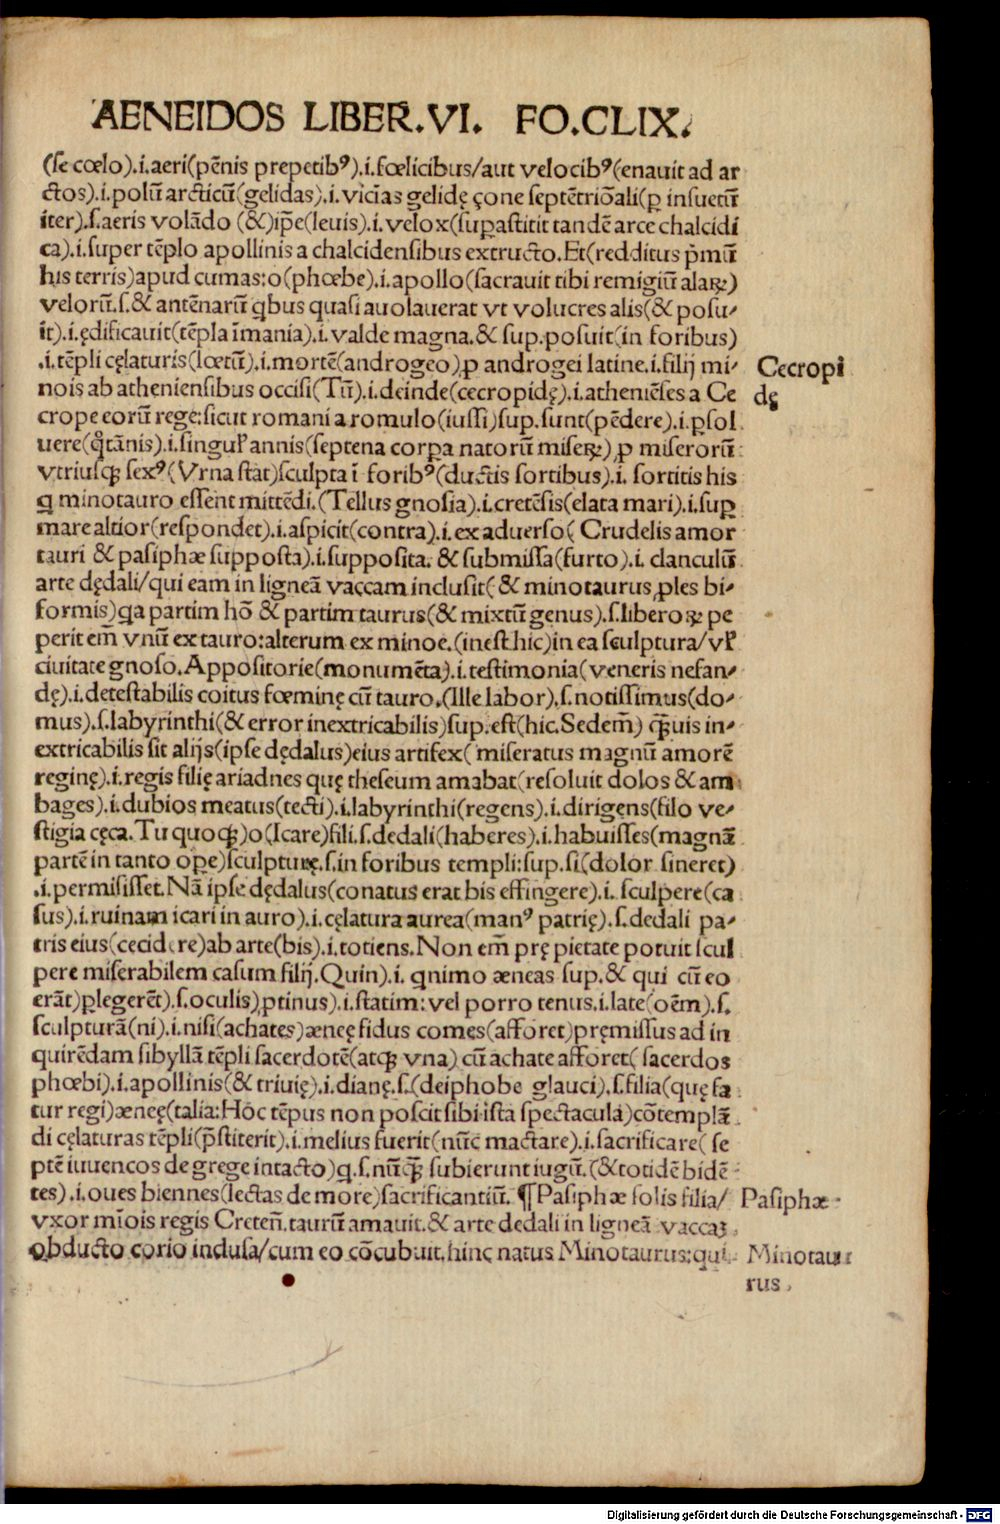 AENEIDOS LIBER.VI. FO.CLIX.
(se cœlo).i.aeri(pēnis prepetibꝰ).i.fœlicibus/aut velocibꝰ(enauit ad ar
ctos).i.polū arcticū(gelidas).i.vicīas gelidę çone septētriōali(ꝑ insuetū
iter).s.aeris volādo (&)ip̄e(leuis).i.velox(suꝑastitit tandē arce chalcidi
ca).i.super tēplo apollinis a chalcidensibus extructo.Et(redditus p̄mū
his terris)apud cumas:o(phœbe).i.apollo(sacrauit tibi remigiū alaꝝ)
velorū.s.& antēnarū ꝗbus quasi auolauerat vt volucres alis(& posu-
īt).i.ędificauit(tēpla īmania).i.valde magna.& sup.posuit(in foribus)
.i.tēpli cęlaturis(lœtū).i.mortē(androgeo)ꝓ androgei latine.i.filij mi-
nois ab atheniensibus occisi(Tū).i.deinde(cecropidę).i.atheniēses a Ce
crope eorū rege:sicut romani a romulo(iussi)sup.sunt(pēdere).i.ꝑsol
uere(qͣtānis).i.singuꝉ annis(septena corꝑa natorū miseꝝ)ꝓ miserorū
vtriusqꝫ sexꝰ(Vrna stat)sculpta ī foribꝰ(ductis sortibus).i. sortitis his
ꝗ minotauro essent mittēdi.(Tellus gnosia).i.cretēsis(elata mari).i.suꝑ
mare altior(respondet).i.aspicit(contra).i.ex aduerso( Crudelis amor
tauri & pasiphæ supposta).i.supposita. & submissa(furto).i. clanculū
arte dędali/qui eam in ligneā vaccam inclusit( & minotaurus ꝓles bi-
formis)ꝗa partim hō & partim taurus(& mixtū genus).s.liberoꝝ pe
perit em̄ vnū ex tauro:alterum ex minoe.(inest hic)in ea sculptura/vꝉ
ciuitate gnoso.Appositorie(monumēta).i.testimonia(veneris nefan-
dę).i.detestabilis coitus fœminę cū tauro.(Ille labor).s.notissimus(do-
mus).s.labyrinthi(& error inextricabilis)sup.est(hic.Sedem̄) qͣꝫuis in-
extricabilis sit alijs(ipse dędalus)eius artifex( miseratus magnū amorē
reginę).i.regis filię ariadnes quę theseum amabat(resoluit dolos & am
bages).i.dubios meatus(tecti).i.labyrinthi(regens).i.dirigens(filo ve-
stigia cęca.Tu quoqꝫ)o(Icare)fili.s.dedali(haberes).i.habuisses(magnā
partē in tanto oꝑe)sculpturę.s.in foribus templi:sup.si(dolor sineret)
.i.permisisset.Nā ipse dędalus(conatus erat bis effingere).i. sculpere(ca
sus).i.ruinam icari in auro).i.cęlatura aurea(manꝰ patrię).s.dedali pa-
tris eius(cecidere)ab arte(bis).i.totiens.Non em̄ prę pietate potuit scul
pere miserabilem casum filij.Quin).i. ꝗnimo æneas sup.& qui cū eo
erāt)ꝑlegerēt).s.oculis)ꝓtinus).i.statim:vel porro tenus.i.late(oēm).s.
sculpturā(ni).i.nisi(achates)ænęę fidus comes(afforet)pręmissus ad in
quirēdam sibyllā tēpli sacerdotē(atqꝫ vna) cū achate afforet( sacerdos
phœbi).i.apollinis(& triuię).i.dianę.s.(deiphobe glauci).s.filia(quę fa
tur regi)ænęę(talia:Hōc tēpus non poscit sibi ista spectacula)cōtemplā
di cęlaturas tēpli(p̄stiterit).i.melius fuerit(nūc mactare).i.sacrificare( se
ptē iuuencos de grege intacto)ꝗ.s.nūqͣꝫ subierunt iugū.(&totidē bidē
tes).i.oues biennes(lectas de more)sacrificantiū. ¶Pasiphæ solis filia/
vxor mīois regis Creteñ.taurū amauit.& arte dedali in ligneā vaccaꝫ
obducto corio inclusa/cum eo cōcubuit.hinc natus Minotaurus:qui
Cecropi
dę
Pasiphæ
Minotau
rus
Digitalisierung gefördert durch die Deutsche Forschungsgemeinschaft - DFG